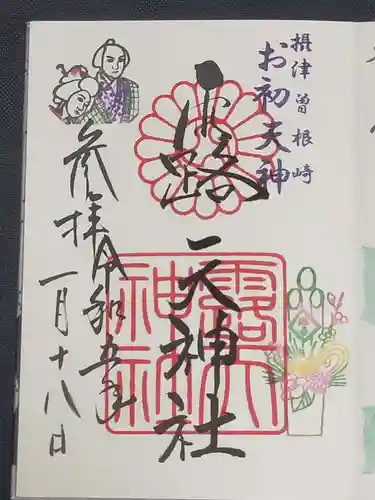 摂津曽根崎
お初天神
露
天神社
参拝令和五年
一月十八日